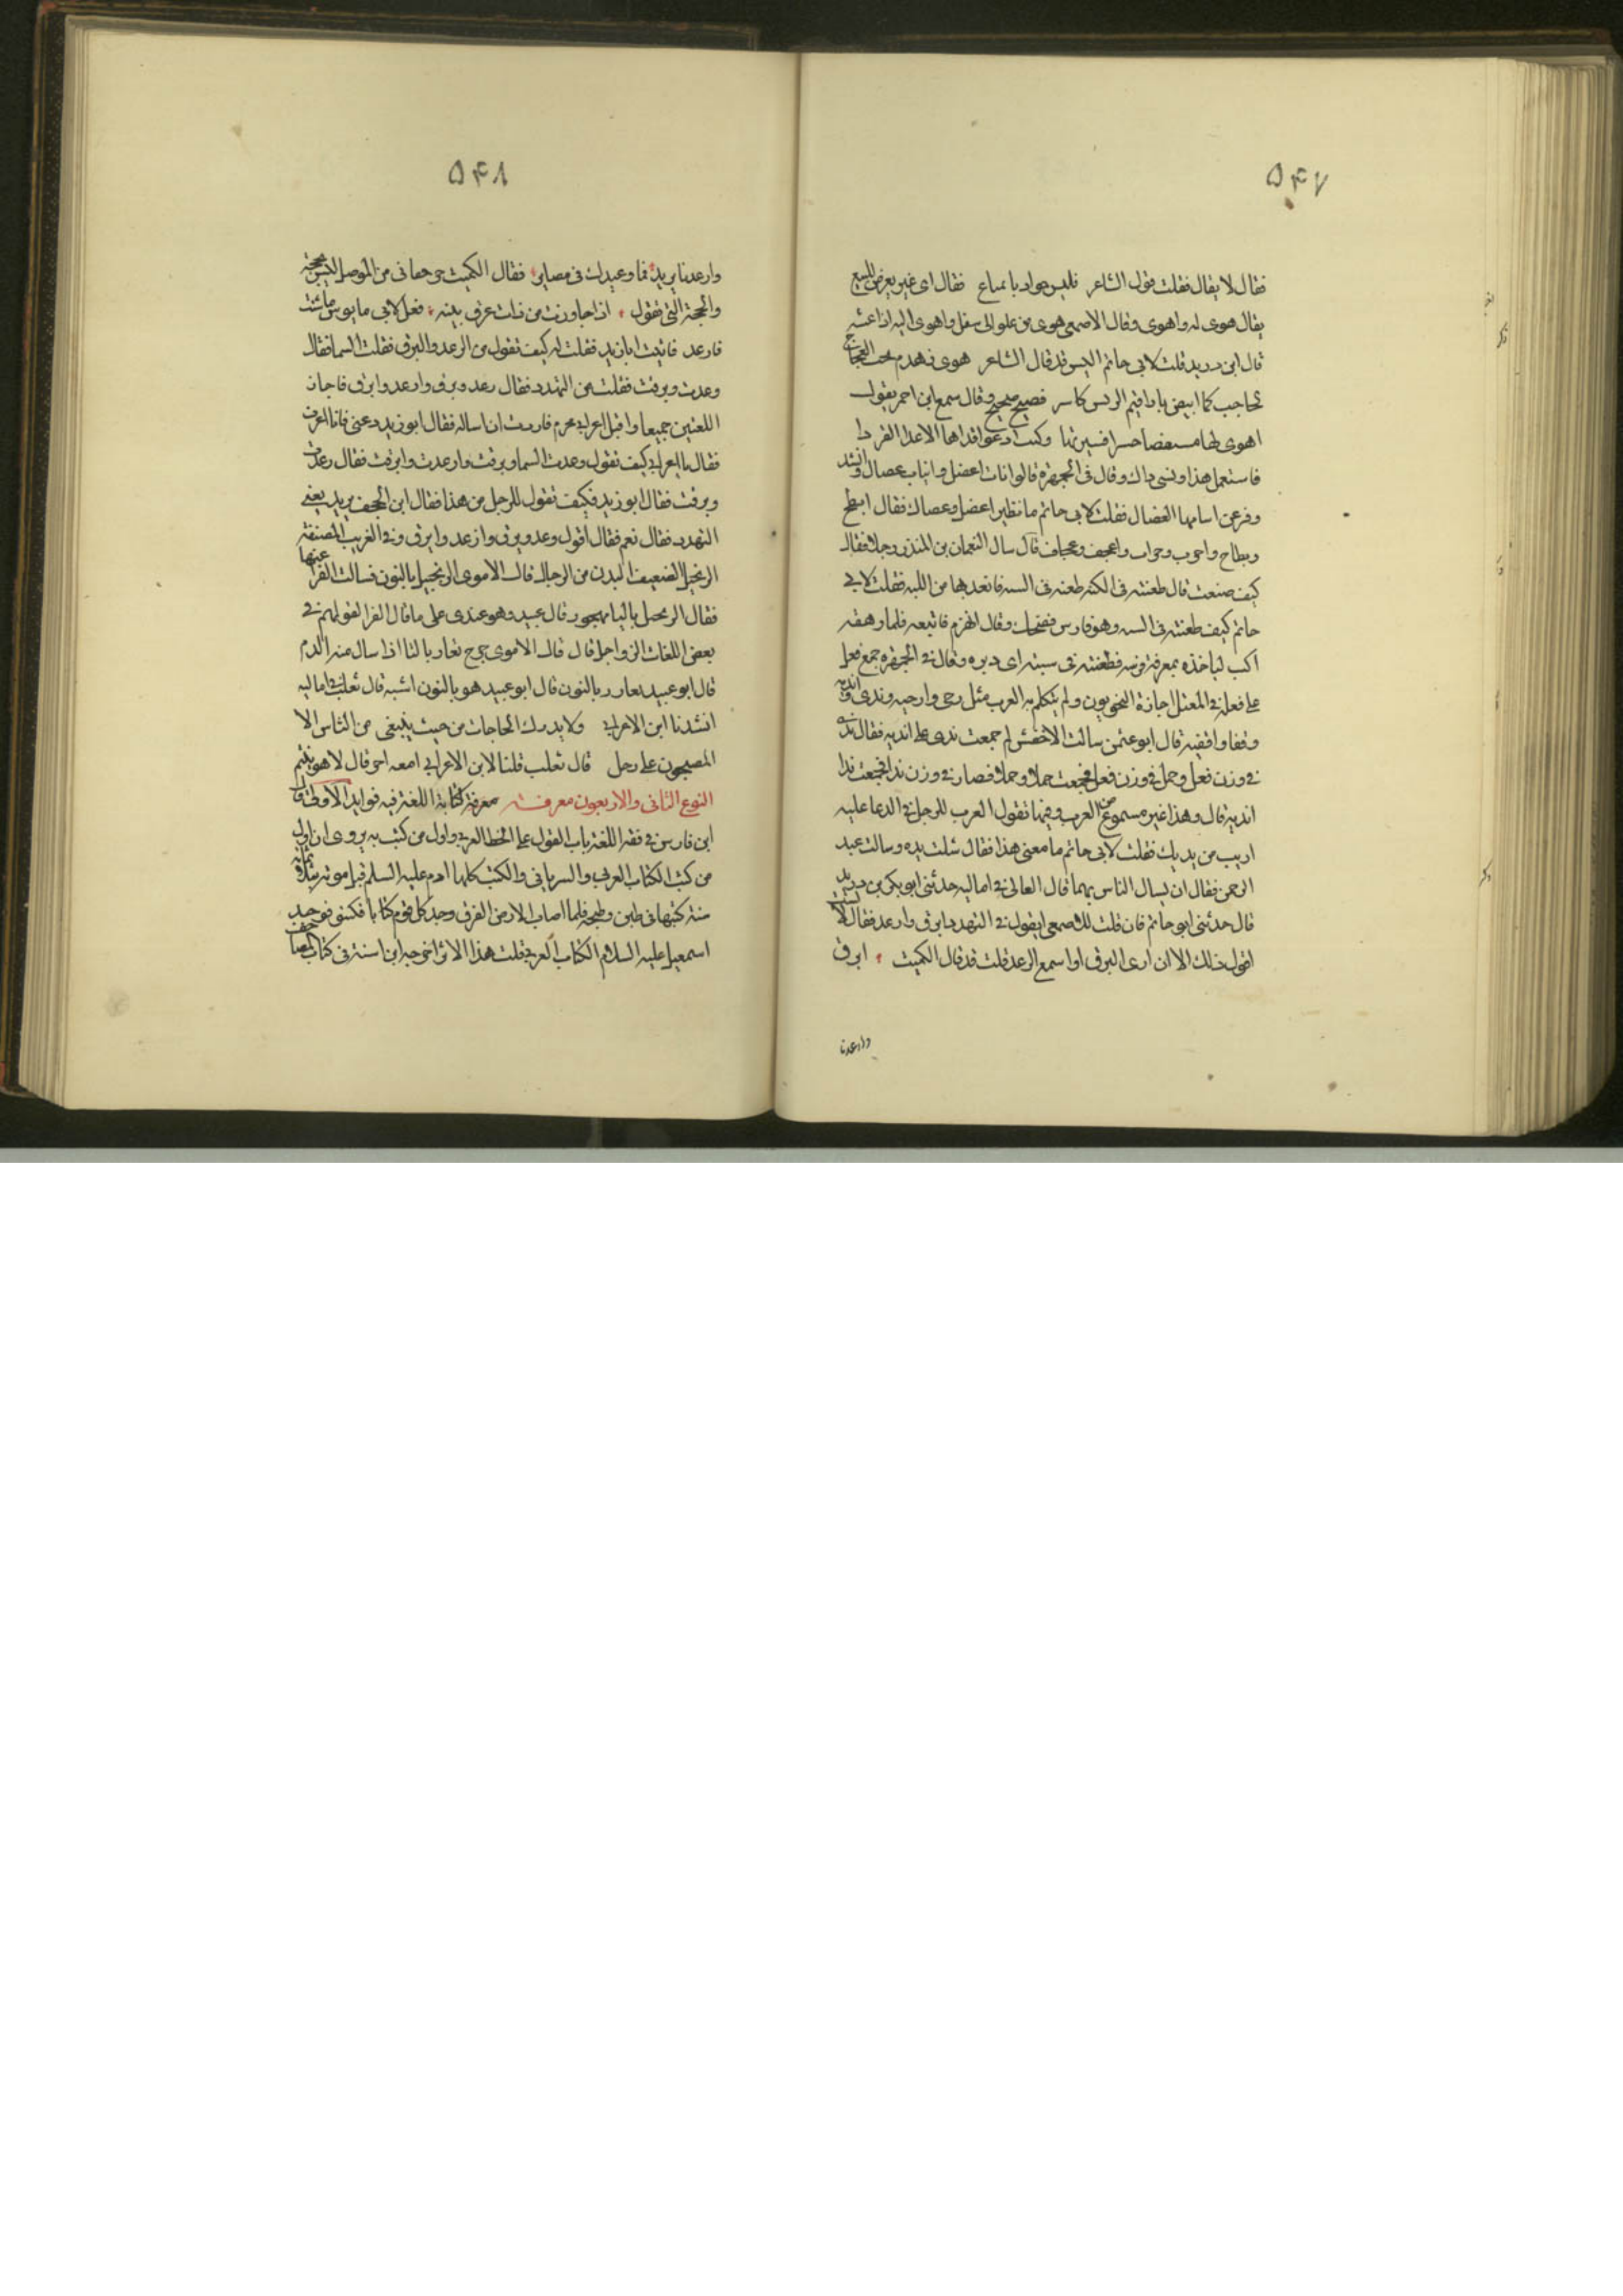 ٥٤٧
فقال لا يقال فقلت قول الشاعر فليس جواد بامباع فقال اى غير معرض للبيع
يقال هوى له واهوى وقال الاصمعى هوى من علو الى سفل واهوى اليه اذا غشيه
قال ابن دريد قلت لابى حاتم اليس قد قال الشاعر هوى زهدم تحت العجاج
لحاجب كما الريش كاسر فصيح صحيح وقال سمع ابن احمر يقول
اهوى لها مشقصا حشرا وكنت ادعو قذاها الاثمد القردا
فاستعمل هذا ونسى ذاك وقال فى الجمهرة قالوا ناب اعضل وانياب عصال وانشد
وفر عن اسامها العضال فقلت لابى حاتم ما نظير اعضل وعصال فقال ابطح
وبطاح واجرب وجراب واعجف وعجاف قال سال النعمان بن المنذر رجلا فقال
كيف صنعت قال طعنته فى الكبه طعنة فى السبه فانفذها من اللبه فقلت لابى
حاتم كيف طعنته فى السبه وهو فارس فضحك وقال انهزم فاتبعه فلما رهقه
اكب لياخذ بمعرفة فرسه فطعنه فى سبته اى دبره وقال فى الجمهرة جمع فعل
على افعلة فى المعتل اجازة النحويون ولم يتكلم به العرب مثل رحى وارحيه وندى وانديه
وقفا واقفيه قال ابو عثمن سالت الاخفش لم جمعت ندى على انديه فقال ندى
فى وزن فعل وجمل فى وزن فعل فجمعت جملا وجمالا فصار فى وزن ندا فجمعت ندا
انديه قال وهذا غير مسموع من العرب وفيها تقول العرب للرجل فى الدعا عليه
اربت من يديك فقلت لابى حاتم ما معنى هذا فقال شلت يده وسالت عبد
الرحمن فقال ان يسال الناس بهما قال القالى فى اماليه حدثنى ابو بكر بن دريد
قال حدثنى ابو حاتم قال قلت للاصمعى اتقول فى التهدد ابرق وارعد فقال لا لست
اقول ذلك الا ان ارى البرق او اسمع الرعد قلت قد قال الكميت ابرق
وارعدنا
٥٤٨
وارعد يا يزيد فما وعيدك فى بضاير فقال الكميت جرمقانى من الموصل ليس بحجة
والحجة التى تقول اذا جاوزت من ذات عرق بينه فقل لابى قابوس ما شئت
فارعد فاتيت ابا زيد فقلت له كيف تقول من الرعد والبرق فقلت السما فقال
رعدت وبرقت فقلت من التهدد فقال رعد وبرق وارعد وابرق فاجاز
اللغتين جميعا واقبل اعرابى محرم فاردت ان اساله فقال ابو زيد دعنى فانا اعرف
فقال يا اعرابى كيف تقول رعدت السما وبرقت وارعدت وابرقت فقال رعدت
وبرقت فقال ابو زيد فكيف تقول للرجل من هذا فقال ابن الجحيف يريد يعنى
التهدد فقال نعم فقال اقول رعد وبرق وارعد وابرق وفى الغريب المصنف
الزنجيل الضعيف البدن من الرجال قال الاموى الزنجيل بالنون فسالت الفرا عنها
فقال الزنجيل باليا مهموز قال عبيد وهو عندى على ما قال الفرا لقولهم فى
بعض اللغات الزواجل قال قال الاموى جرح تغار بالتا اذا سال منه الدم
قال ابو عبيد نعار بالنون قال ابو عبيد هو بالنون اشبه قال ثعلب فى اماليه
انشدنا ابن الاعرابى ولا يدرك الحاجات من حيث يبتغى من الناس الا
المصبحون على رجل قال ثعلب قلنا لابن الاعرابى امعه اخر قال لا هو يتيم
النوع الثانى والاربعون معرفة معرفة كتابة اللغة فيه فوايد الاولى قال
ابن فارس فى فقه اللغة باب القول على الخط العربى واول من كتب به يروى ان اول
من كتب الكتاب العربى والسريانى والكتب كلها ادم عليه السلم قبل موته بثلثمائة
سنة كتبها فى طين وطبخه فلما اصاب الارض الغرق وجد كل قوم كتابا فكتبوه فوجد
اسمعيل عليه السلام الكتاب العربى قلت هذا الاثر اخرجه ابن اشته فى كتاب المصاحف